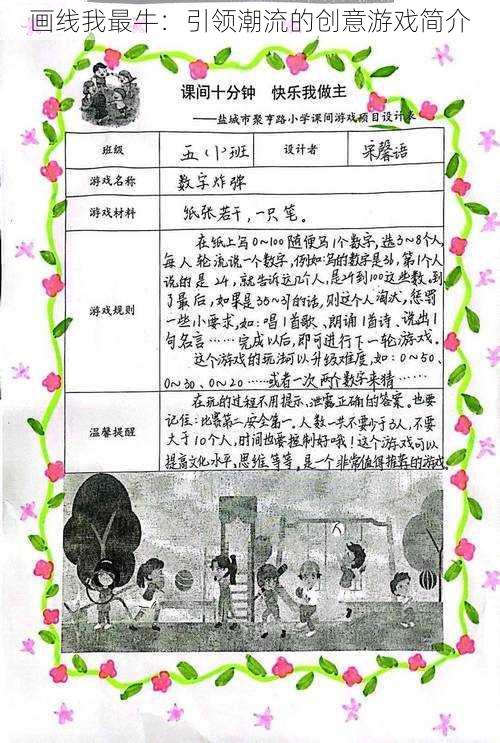 画线我最牛：引领潮流的创意游戏简介
课间十分钟 快乐我做主
——盐城市聚亨路小学课间游戏项目设计表
班级 五（1）班 设计者 宋馨语
游戏名称 数字炸弹
游戏材料 纸张若干，一只笔。
在纸上写0~100随便写1个数字，选3~8个人，
每人轮流说一个数字，例如：写的数字是36，第1个人
说的是24，就告诉这几个人，是24到100这些数，到
了最后，如果是35~37的话，则这个人淘汰，惩罚
游戏规则
一些小要求，如：唱1首歌、朗诵1首诗、说出1
句名言……完成以后，即可进行下一轮游戏。
这个游戏的玩法可以升级难度，如：0~50、
0~30、0~20……或者一次两个数字来猜……
在玩的过程不用提示、泄露正确的答案。也要
记住：比赛第二，安全第一，人数一共不要少于3人，不要
温馨提醒
大于10个人，时间也要控制好哦！这个游戏可以
提高文化水平、思维等等，是一个非常值得推荐的游戏